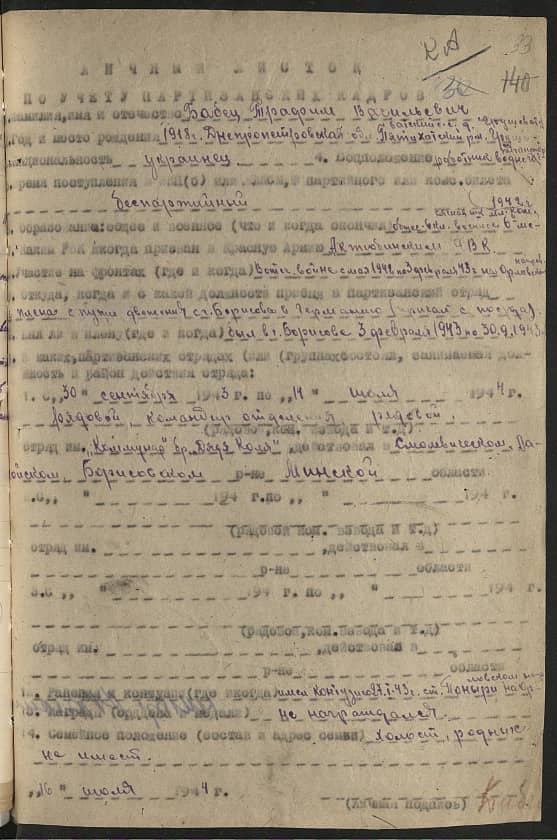 КА 33
30 140
ЛИЧНЫЙ ЛИСТОК
ПО УЧЕТУ ПАРТИЗАНСКИХ КАДРОВ
фамилия, имя и отчество Бабец Трафим Васильевич
Год и место рождения 1918. Днепропетровская обл. Пятихатский р-н.
национальность украинец 4. Соцположение работник
время поступления в ВКП(б) или ВЛКСМ, № партийного или комс. билета
беспартийный
1942 г.
образование: общее и военное (что и когда окончил)
каким РВК и когда призван в Красную Армию Актюбинским ГВК
участие на фронтах (где и когда) Вотеч. войне с мая 1942 по 3 февраля 43 г. на Орловском
откуда, когда и с какой должности прибыл в партизанский отряд
плена с пути движения ст. Борисова в Германию
был ли в плену (где и когда) был в г. Борисове 3 февраля 1943 по 30.9.1943
в каких партизанских отрядах (или группах) состоял, занимаемая дол-
жность и район действия отряда:
1. С „30" сентября 1943 г. по „14" июля 1944 г.
рядовой, командир отделения рядовой,
(рядовой, ком. взвода и т.д)
отряд им. „Коммунар" бр. Дядя Коля", действовал в Смолевическом, Ла-
ойском Борисовском р-не Минской области
2. С „ " 194 г. по „ " 194 г.
(рядовой ком. взвода и т.д)
отряд им. , действовал в
р-не области
3. С „ " 194 г. по „ " 194 г.
(рядовой, ком. взвода и т.д)
отряд им. , действовал в
р-не области
Ранения и контузии (где и когда) имел контузию 27.I.43 г. ст. Поныри на
13. Награды (ордена медали) не награждался.
14. Семейное положение (состав и адрес семьи) холост, родных
не имеет.
„16" июля 1944 г.
(личная подпись)